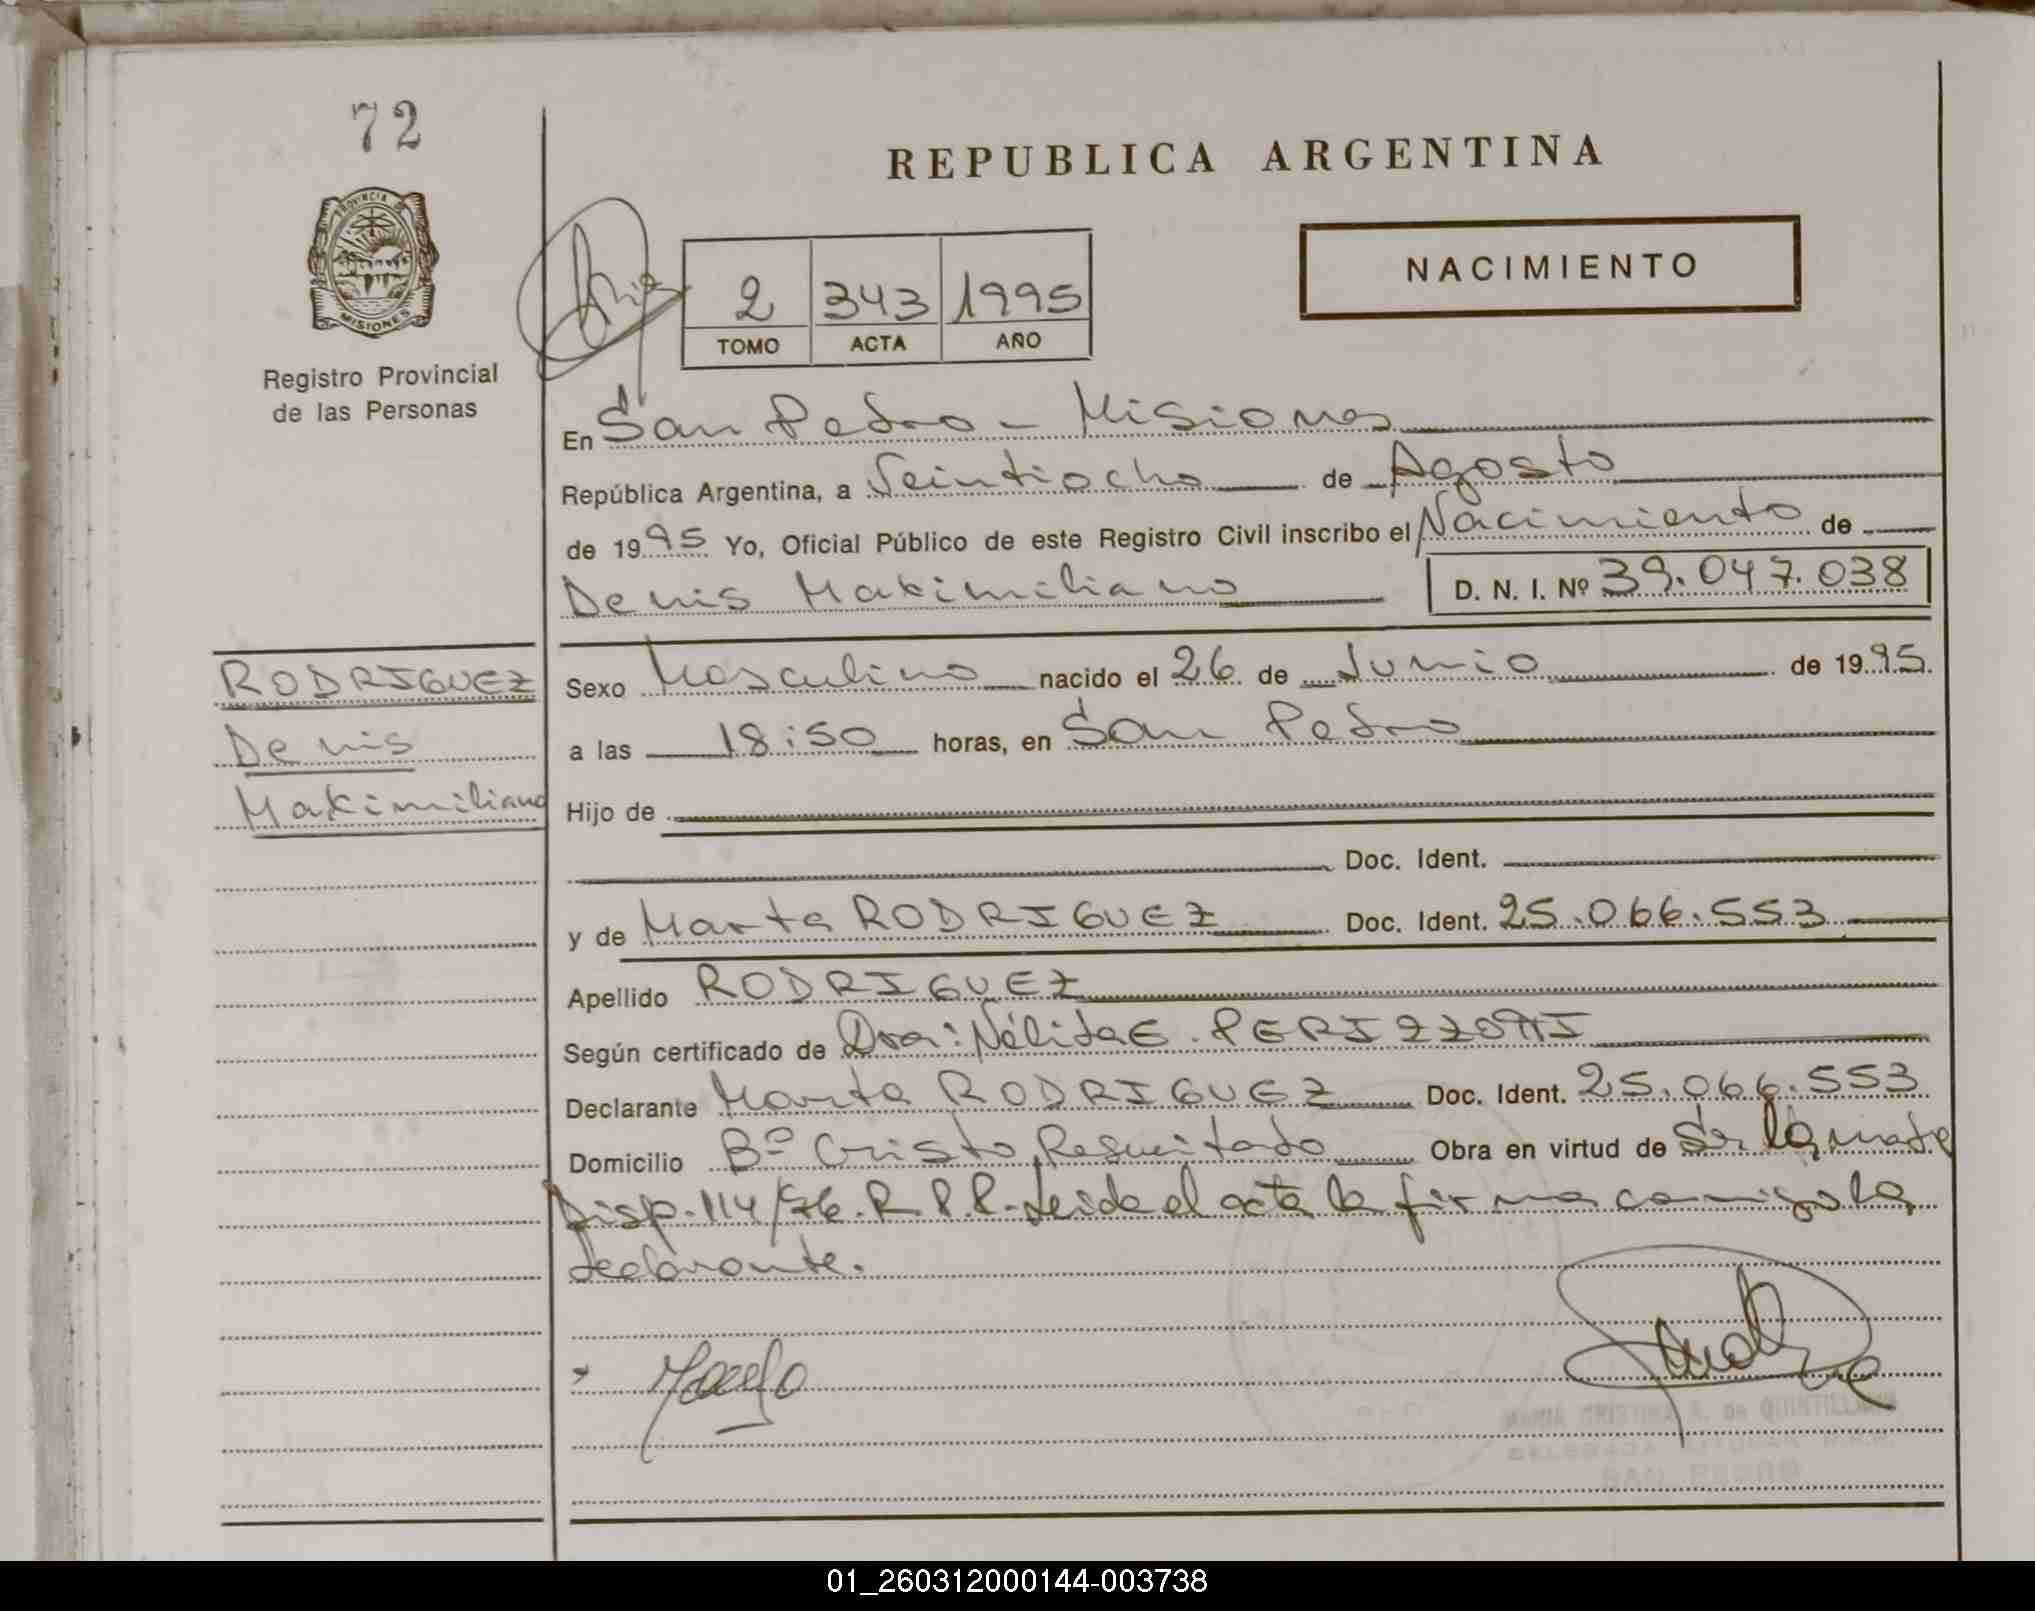 72
REPUBLICA ARGENTINA
PROVINCIA DE
MISIONES
Registro Provincial
de las Personas
2 343 1995
TOMO ACTA AÑO
NACIMIENTO
En San Pedro - Misiones
República Argentina, a Veintiocho de Agosto
de 1995 Yo, Oficial Público de este Registro Civil inscribo el Nacimiento de
Denis Maximiliano D. N. I. Nº 39.047.038
RODRIGUEZ
Denis
Maximiliano
Sexo Masculino nacido el 26 de Junio de 1995.
a las 18:50 horas, en San Pedro
Hijo de
Doc. Ident.
y de Marta RODRIGUEZ Doc. Ident. 25.066.553
Apellido RODRIGUEZ
Según certificado de Dra: Nélida E.
Declarante Marta RODRIGUEZ Doc. Ident. 25.066.553
Domicilio Bº Cristo Resucitado Obra en virtud de Ser la madre
Disp. 114/76. R.P.P. Leida el acta la firma conmigo la
declarante.
MARIA CRISTINA R. de QUINTILLANA
DELEGADA TITULAR R.P.P.
SAN PEDRO
01_260312000144-003738